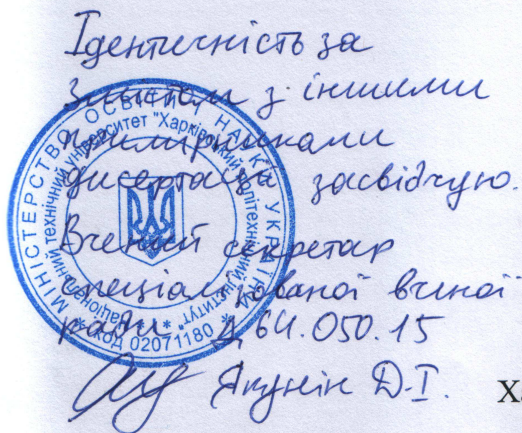 Ідентичність за
змістом з іншими
примірниками
дисертації засвідчую.
Вчений секретар
спеціалізованої вченої
ради Д 64.050.15
Якунін Д.І.
Ха
МІНІСТЕРСТВО ОСВІТИ І НАУКИ УКРАЇНИ
Національний технічний університет "Харківський політехнічний інститут"
* Код 02071180 *